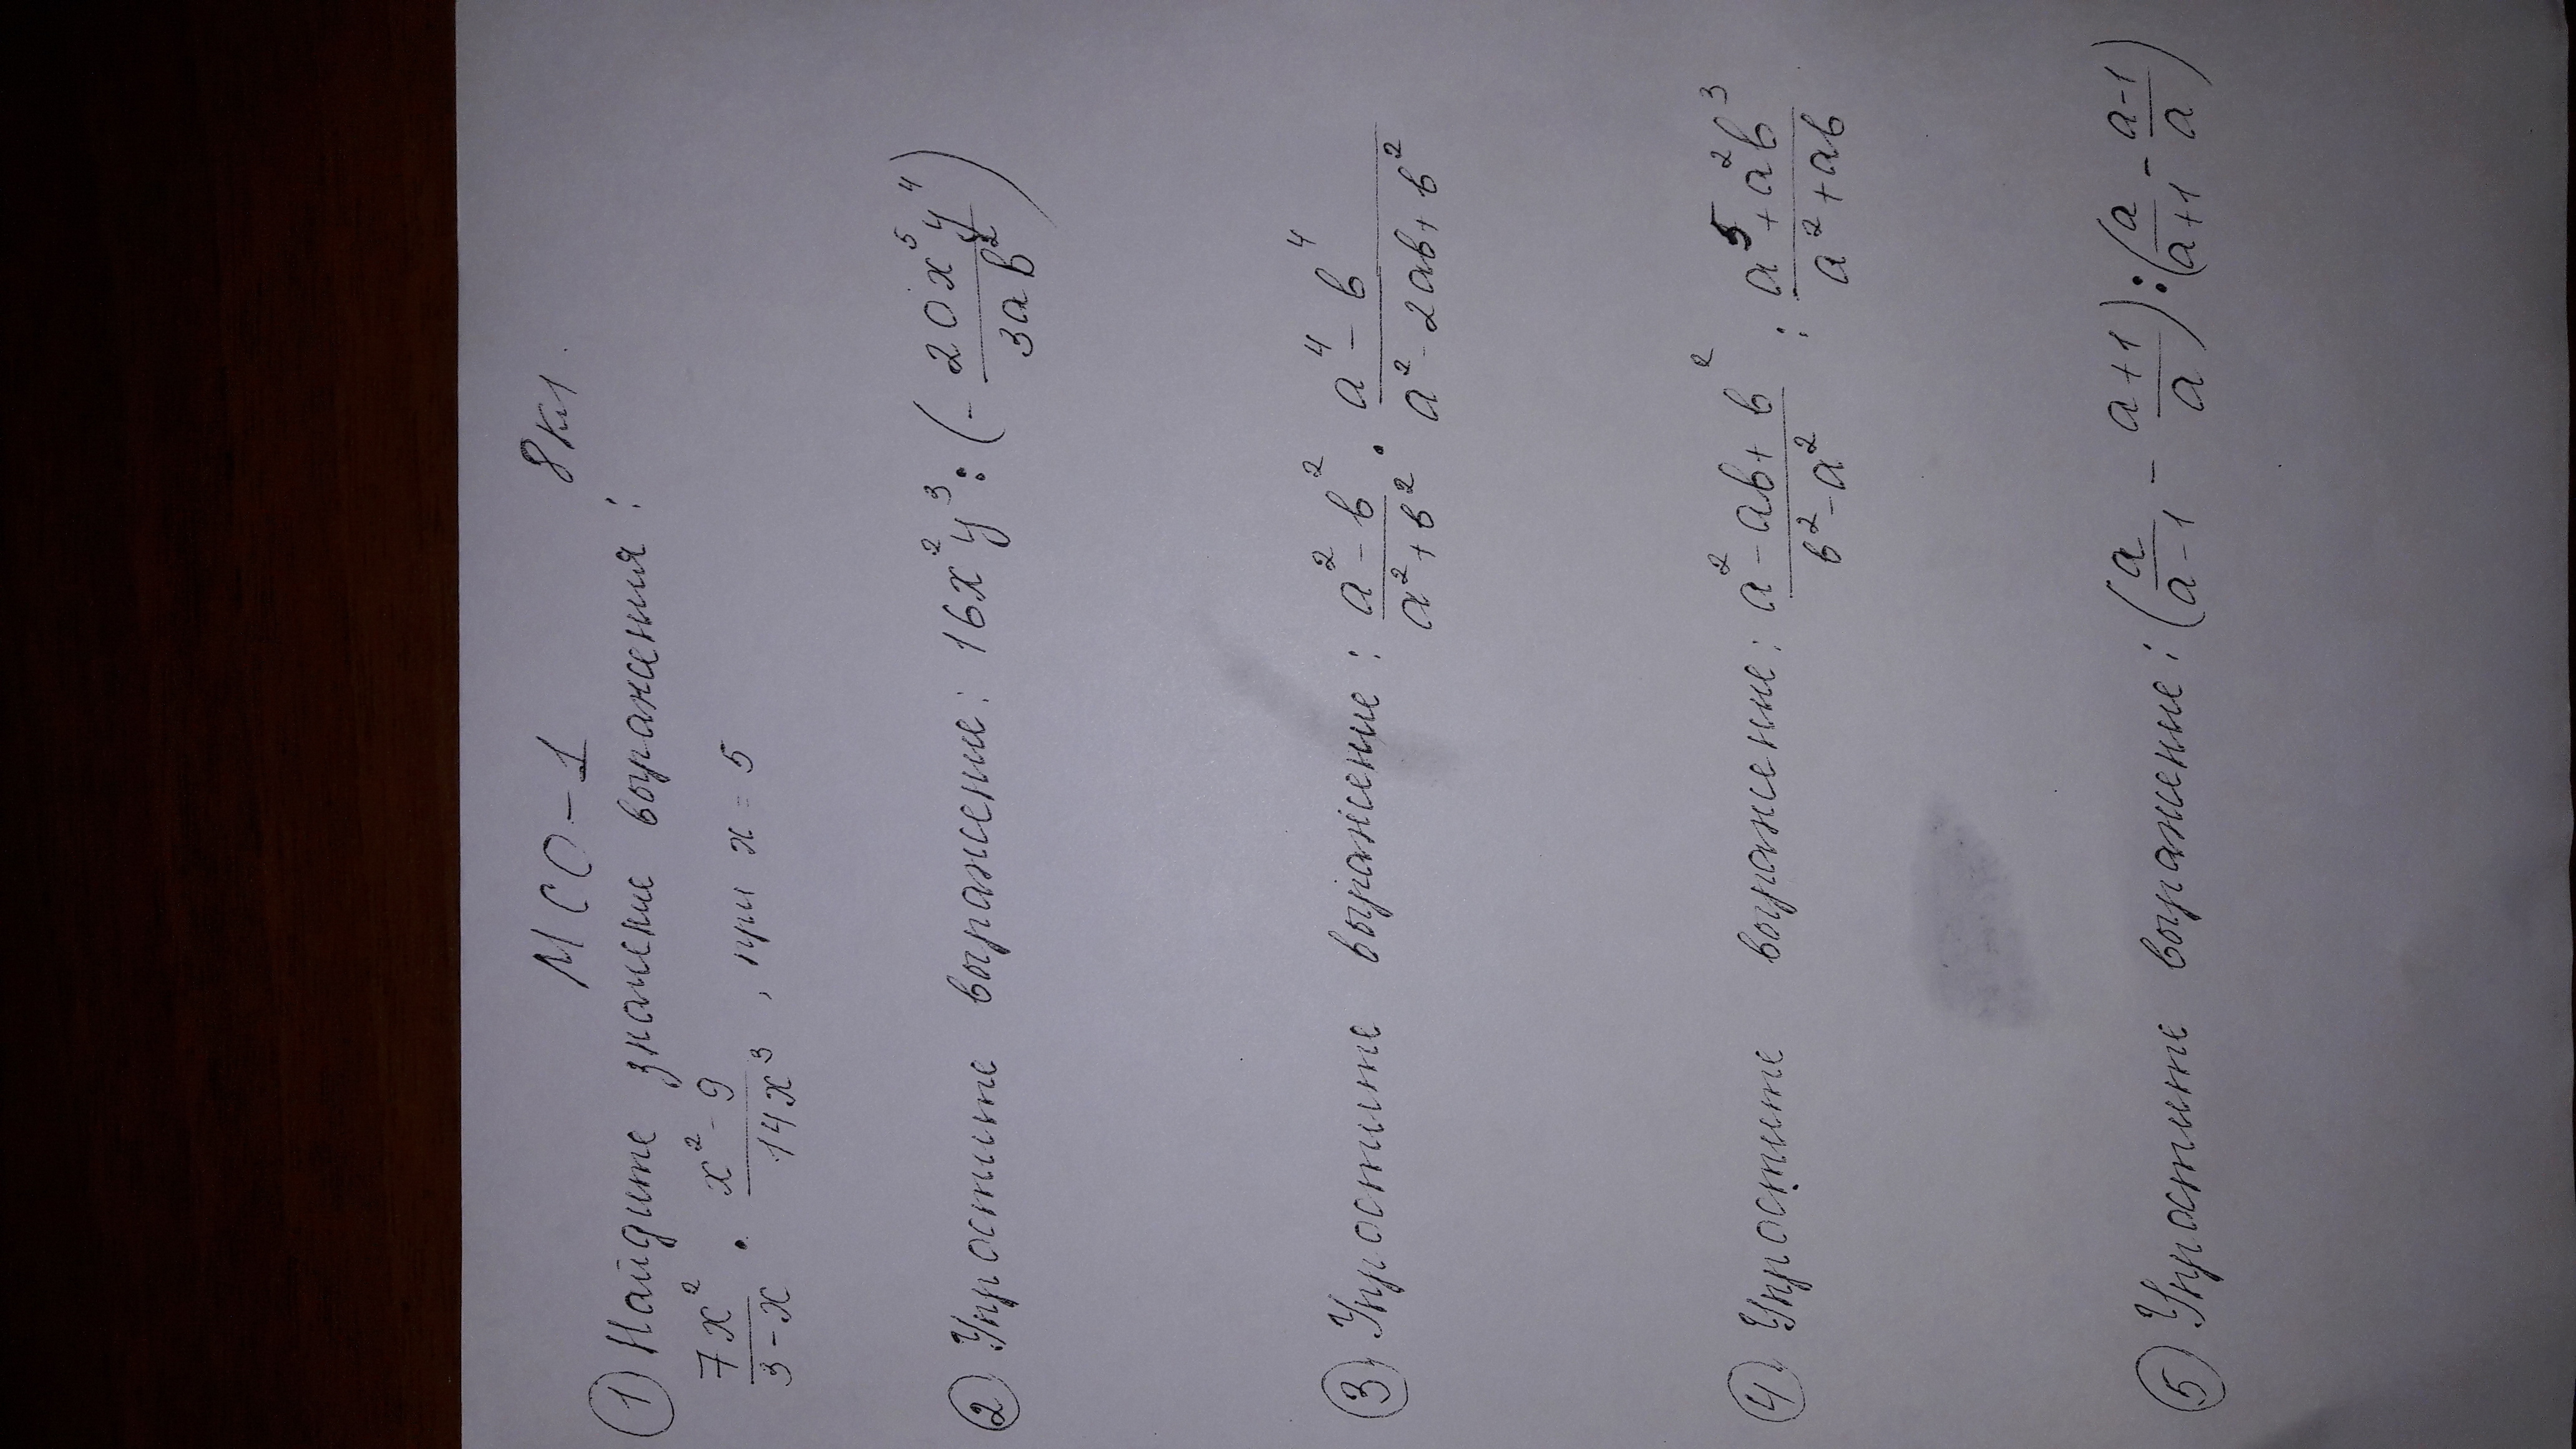 МСО-1 8кл.
① Найдите значение выражения:
7x²/(3-x) · (x²-9)/(14x³), при x = 5
② Упростите выражение: 16x²y³ : (- 20x⁵y⁴/(3ab²))
③ Упростите выражение: (a²-b²)/(a²+b²) · (a⁴-b⁴)/(a²-2ab+b²)
④ Упростите выражение: (a²-ab+b²)/(b²-a²) : (a⁵+a²b³)/(a²+ab)
⑤ Упростите выражение: (a/(a-1) - (a+1)/a) : (a/(a+1) - (a-1)/a)